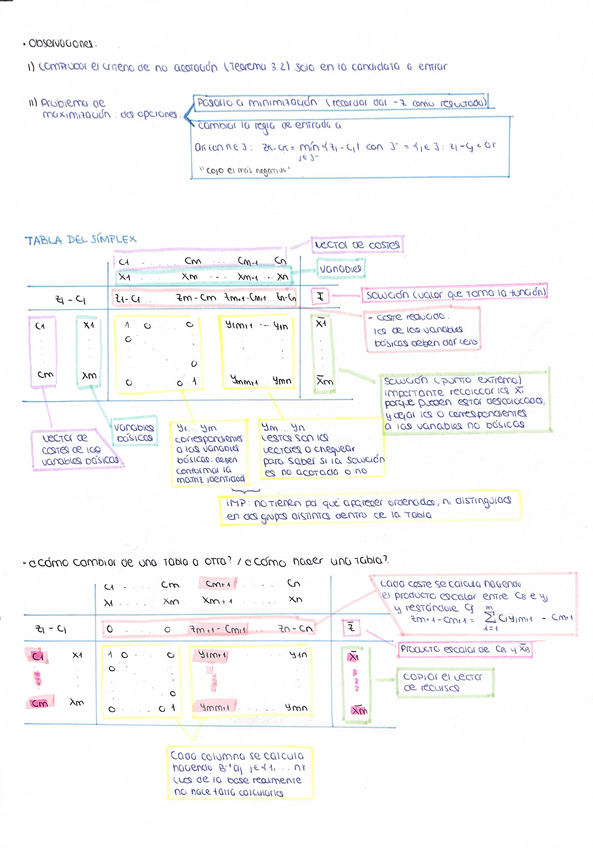 · Observaciones:
i) Comprobar el criterio de no acotación (Teorema 3.2) solo en la candidata a entrar
ii) Problema de maximización: dos opciones:
Pasarlo a minimización (recordar dar -z como resultado)
Cambiar la regla de entrada a
zk-ck = min {zj-cj} con J⁻ = {j∈J: zj-cj<0}
j∈J⁻
"cojo el más negativo"
TABLA DEL SÍMPLEX
c1 .... cm ... cm+1 ... cn
vector de costes
x1 .... xm ... xm+1 ... xn
variables
zj-cj
z1-c1 ... zm-cm zm+1-cm+1 ... zn-cn
z̄
solución (valor que toma la función)
- coste reducido:
los de las variables
básicas deben dar cero
c1 x1 1 0 .. 0 y1m+1 ... y1n x̄1
0
0
cm xm 0 .. 0 1 ymm+1 ... ymn x̄m
solución (punto extremo)
importante recolocar los x̄i
porque pueden estar descolocados,
y dejar los 0 correspondientes
a las variables no básicas
vector de
costes de las
variables básicas
variables
básicas
y1... ym
correspondientes
a las variables
básicas: deben
conformar la
matriz identidad
ym... yn
estos son los
vectores a chequear
para saber si la solución
es no acotada o no
IMP: no tienen por qué aparecer ordenados, ni distinguidos
en dos grupos distintos dentro de la tabla
- ¿Cómo cambiar de una tabla a otra? / ¿Cómo hacer una tabla?
c1 ..... cm cm+1 ... cn
x1 ..... xm xm+1 ... xn
Cada coste se calcula haciendo
el producto escalar entre CB e yj
y restándole cj
zm+1-cm+1 = Σ ciyim+1 - cm+1
m
i=1
zj-cj
0 .... 0 zm+1-cm+1 ... zn-cn
z̄
Producto escalar de CB y x̄B
c1 x1 1 0 .. 0 y1m+1 y1n x̄1
0
0
cm xm 0 .. 0 1 ymm+1 ymn x̄m
copiar el vector
de recursos
Cada columna se calcula
haciendo B⁻¹aj j∈{1,...n}
(las de la base realmente
no hace falta calcularlas